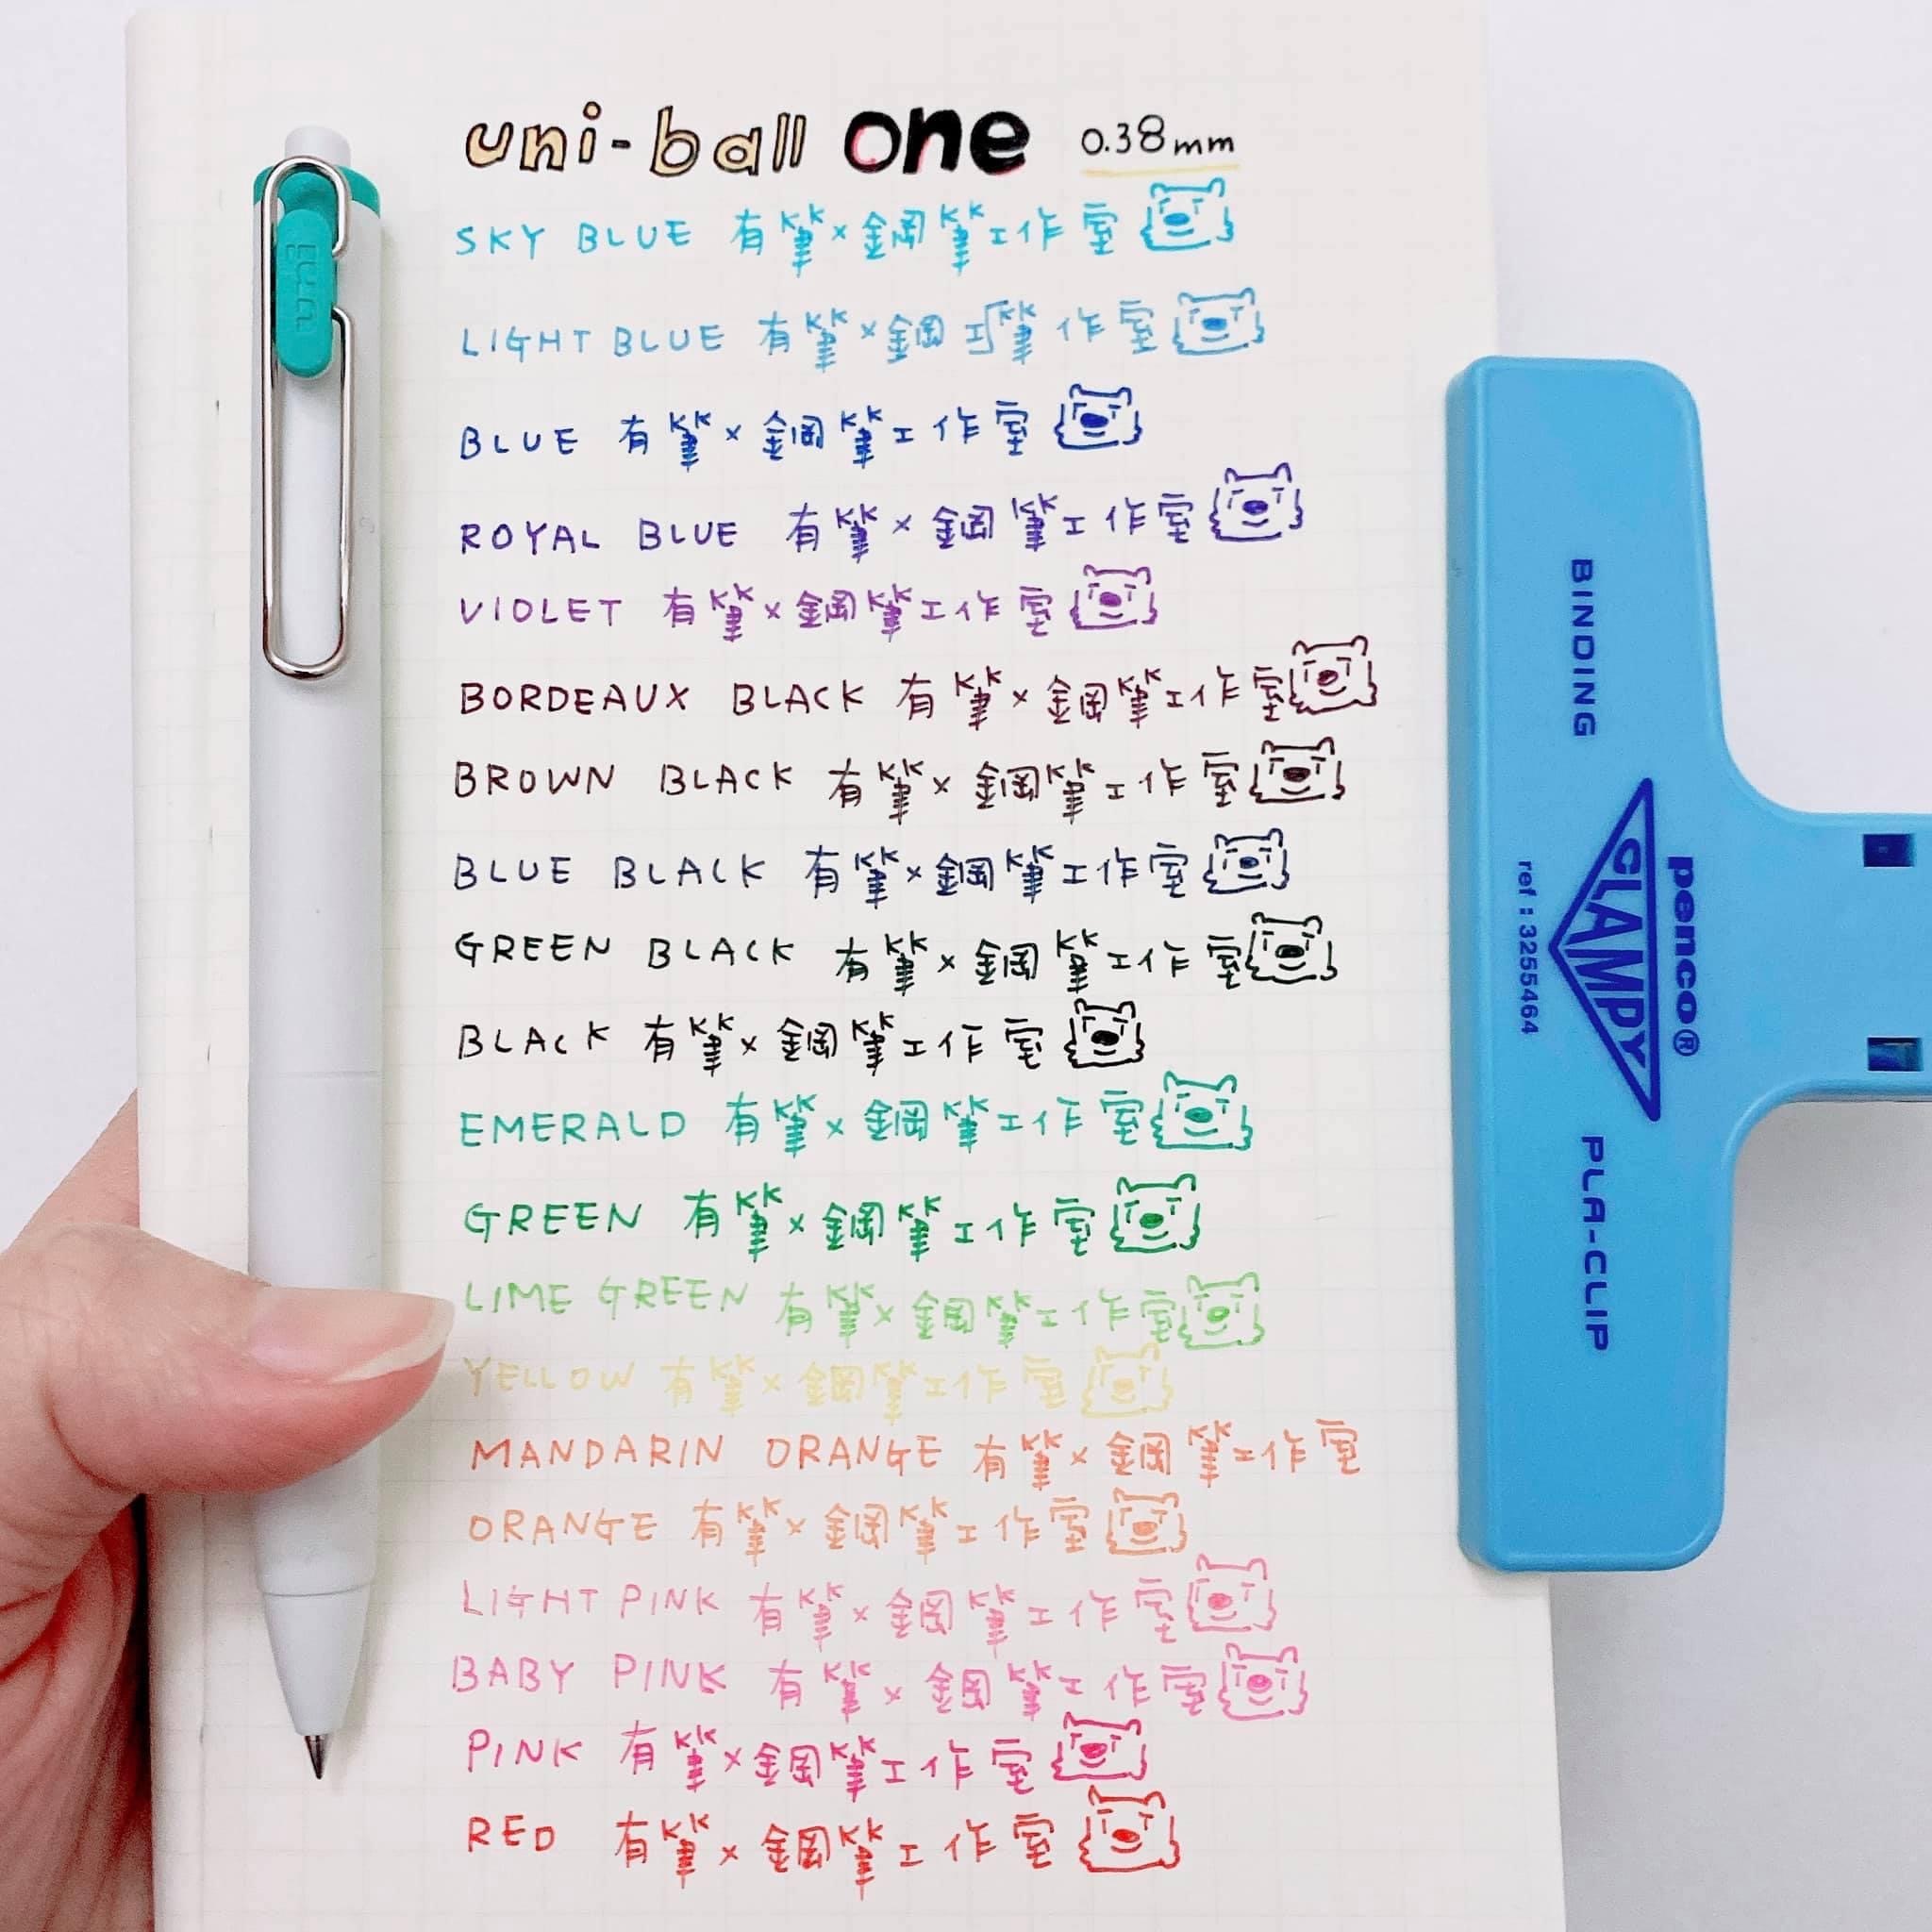 uni-ball one 0.38mm
SKY BLUE 有筆×鋼筆工作室
LIGHT BLUE 有筆×鋼工筆作室
BLUE 有筆×鋼筆工作室
ROYAL BLUE 有筆×鋼筆工作室
VIOLET 有筆×鋼筆工作室
BORDEAUX BLACK 有筆×鋼筆工作室
BROWN BLACK 有筆×鋼筆工作室
BLUE BLACK 有筆×鋼筆工作室
GREEN BLACK 有筆×鋼筆工作室
BLACK 有筆×鋼筆工作室
EMERALD 有筆×鋼筆工作室
GREEN 有筆×鋼筆工作室
LIME GREEN 有筆×鋼筆工作室
YELLOW 有筆×鋼筆工作室
MANDARIN ORANGE 有筆×鋼筆工作室
ORANGE 有筆×鋼筆工作室
LIGHT PINK 有筆×鋼筆工作室
BABY PINK 有筆×鋼筆工作室
PINK 有筆×鋼筆工作室
RED 有筆×鋼筆工作室
uni
BINDING
penco®
CLAMPY
ref : 3255464
PLA-CLIP